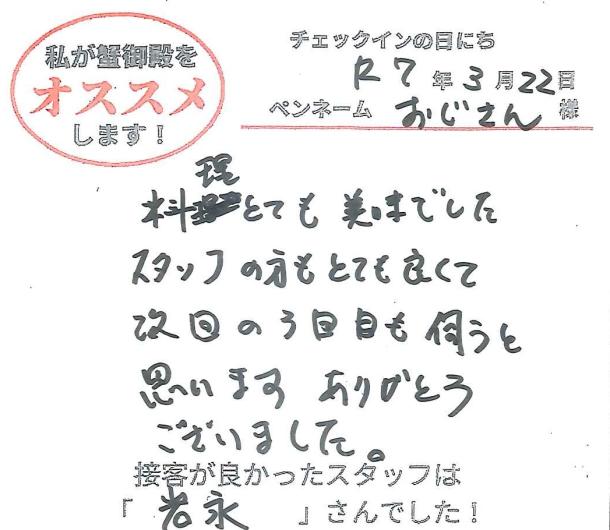 私が蟹御殿を
オススメ
します!
チェックインの日にち
R7年3月22日
ペンネーム おじさん 様
料理とても美味でした
スタッフの方もとても良くて
次回の3回目も伺うと
思います ありがとう
ございました。
接客が良かったスタッフは
「 岩永 」さんでした!